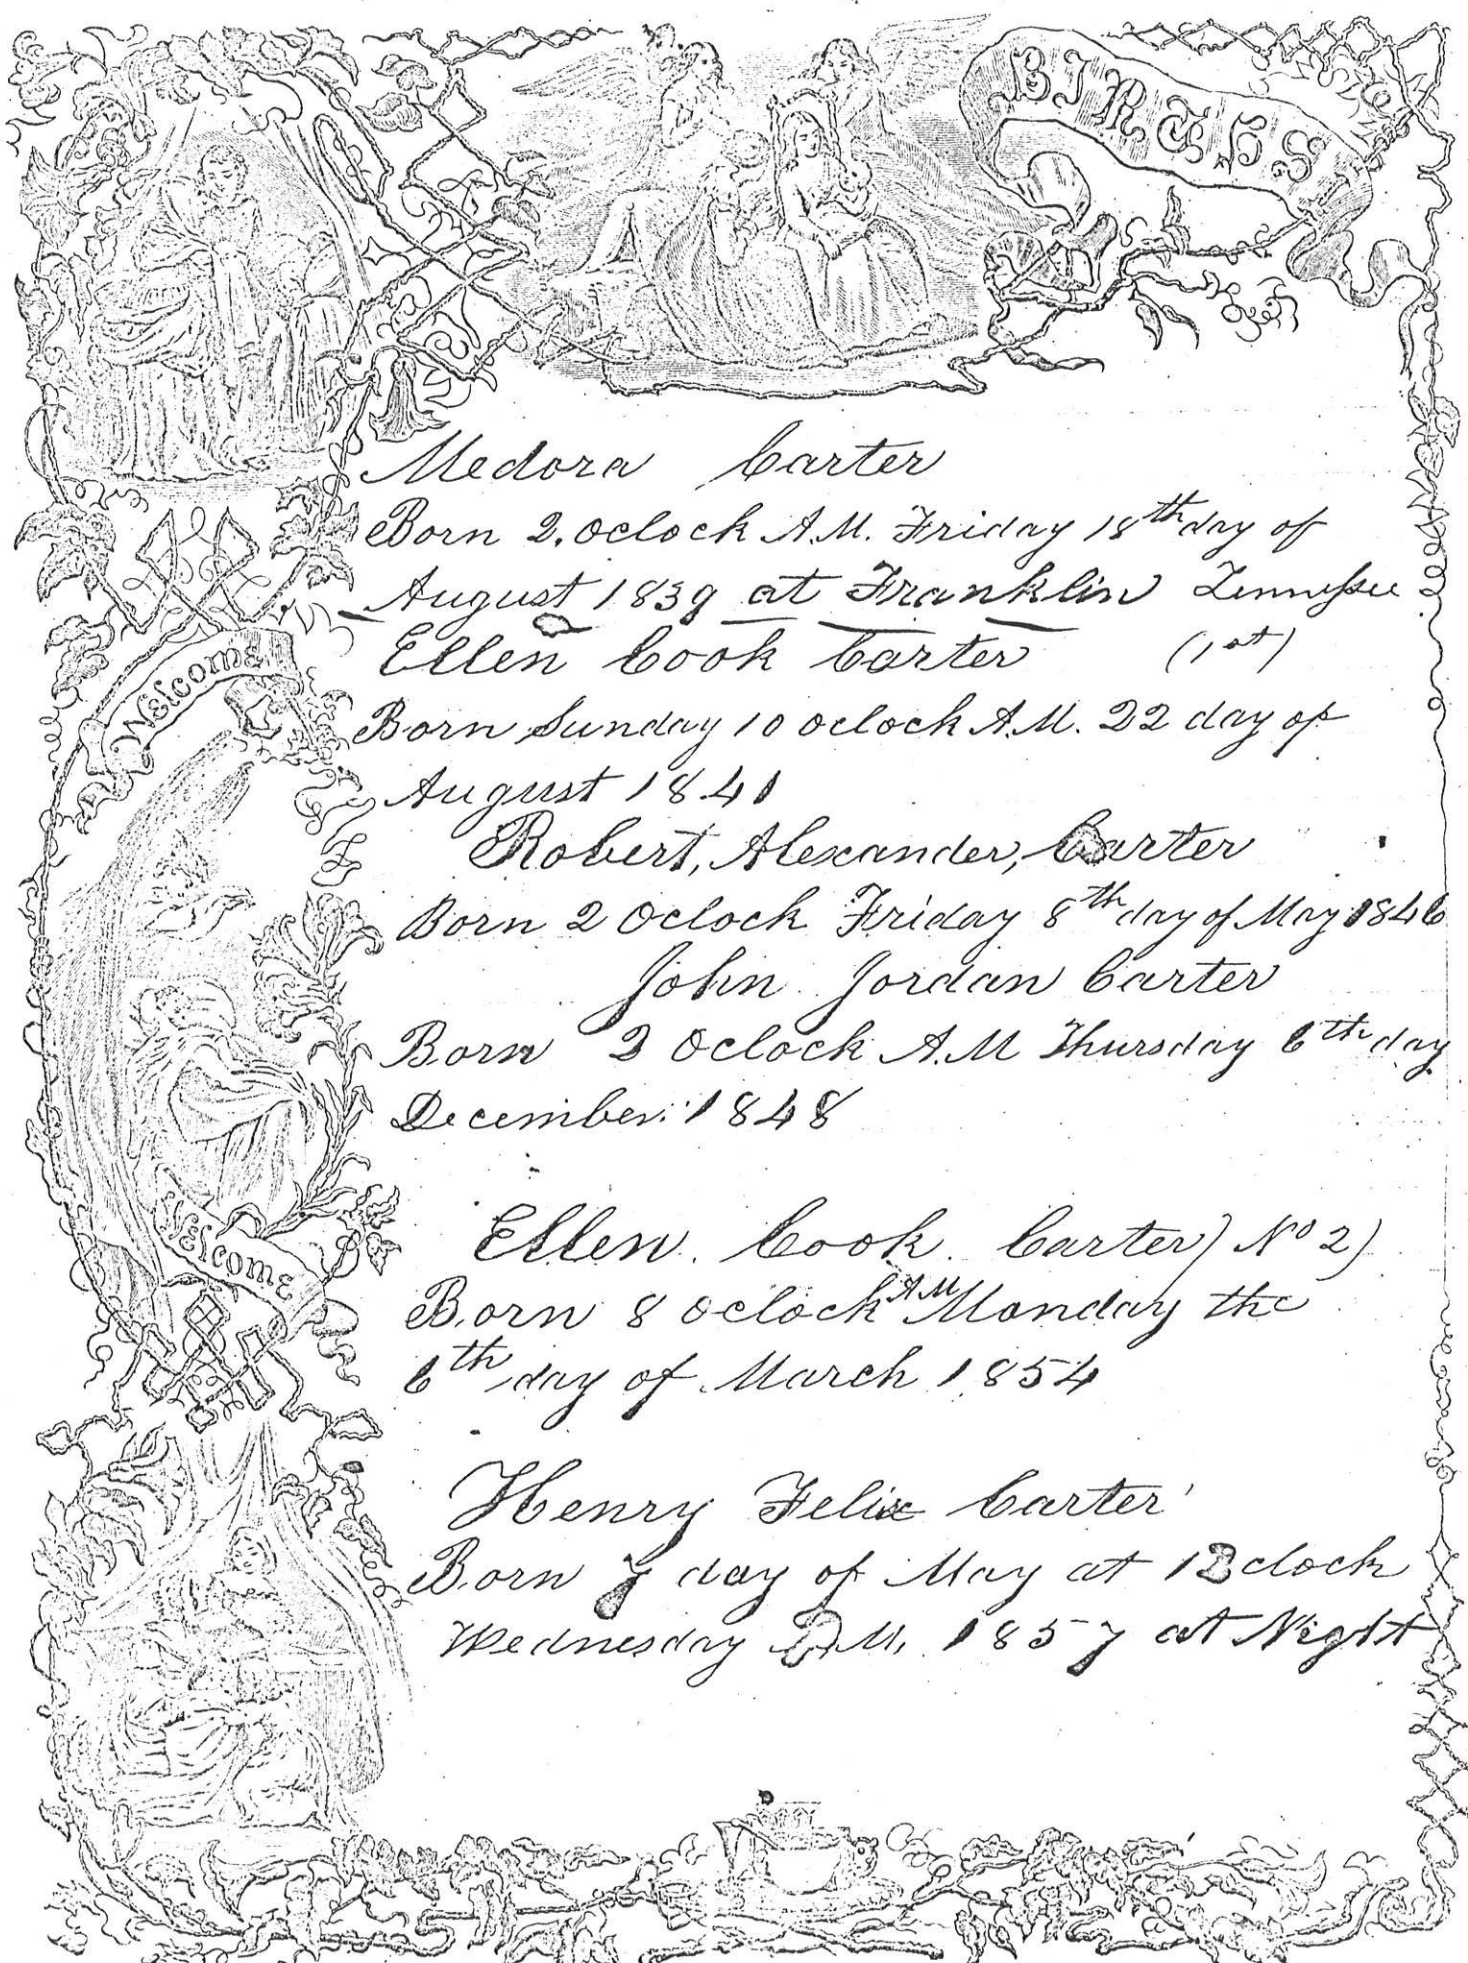 BIRTHS
Medora Carter
Born 2. Oclock A.M. Friday 18th day of
August 1839 at Franklin Tennessee
Welcome
Ellen Cook Carter (1st)
Born Sunday 10 Oclock A.M. 22 day of
August 1841
Robert, Alexander, Carter
Born 2 Oclock Friday 8th day of May 1846
John Jordan Carter
Born 2 Oclock A.M Thursday 6th day
December 1848
Welcome
Ellen. Cook. Carter) No 2)
Born 8 Oclock AM Monday the
6th day of March 1854
Henry Felix Carter
Born 7 day of May at clock
Wednesday P.M. 1857 at Night